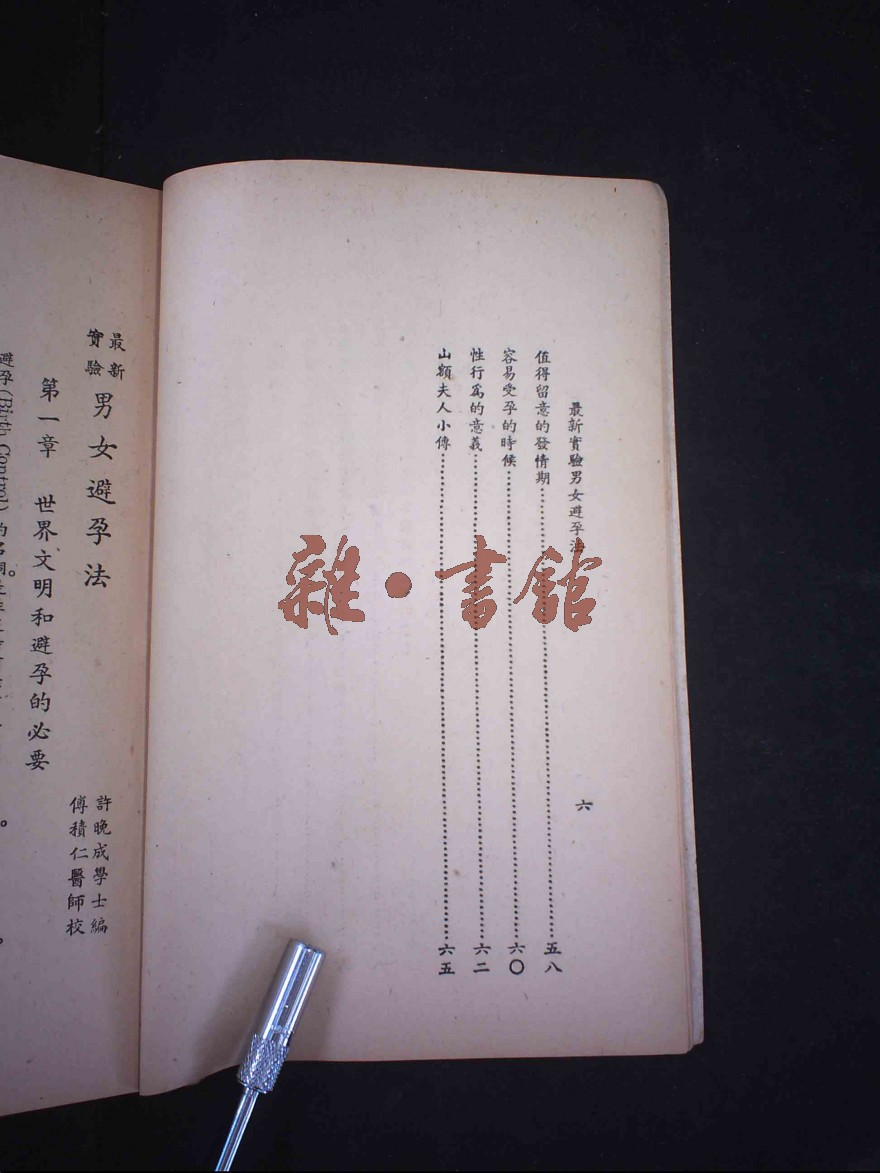 最新實驗男女避孕法
六
值得留意的發情期……五八
容易受孕的時候……六〇
性行爲的意義……六二
山額夫人小傳……六五
雜·書館
最新
實驗
男女避孕法
許晚成學士編
傅積仁醫師校
第一章 世界文明和避孕的必要
避孕(Birth Control)